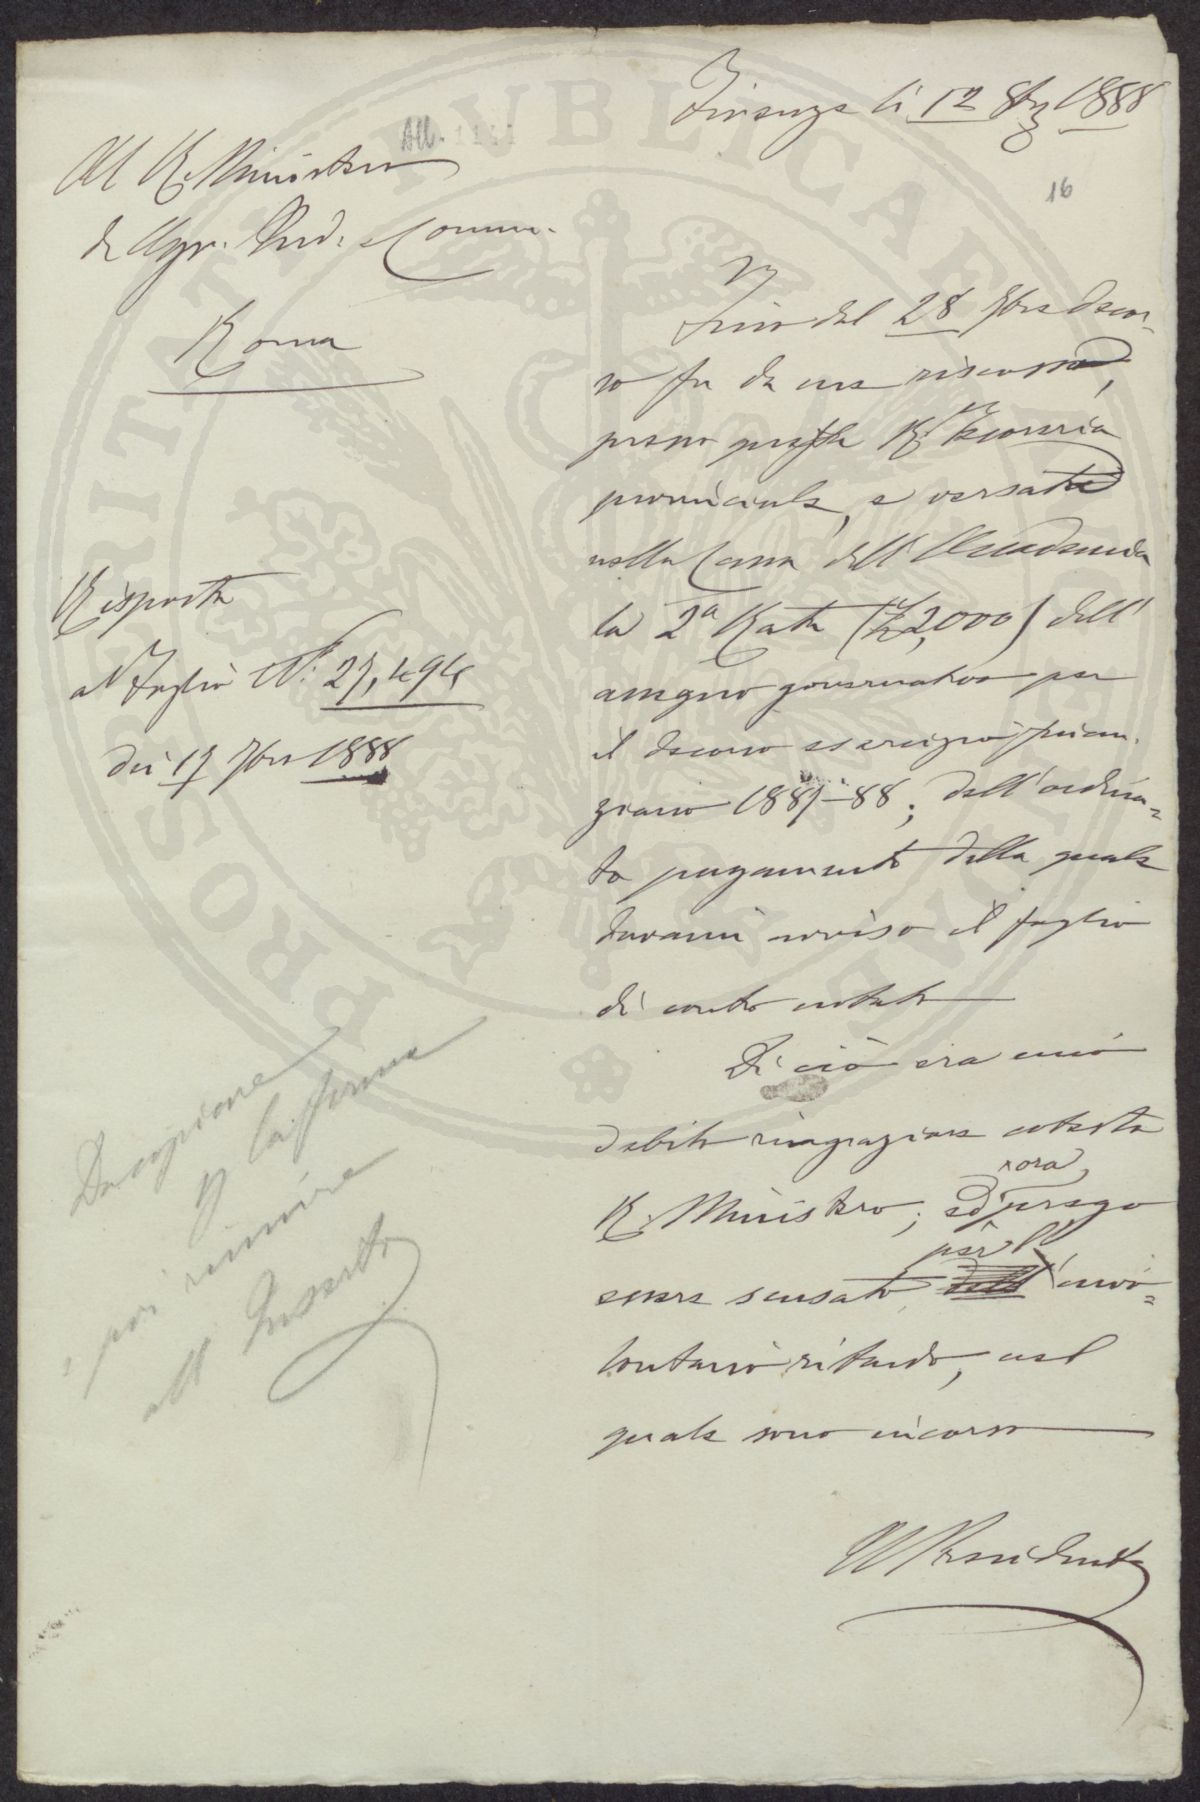 Firenze lì 12 8bre 1888
All. 1111
16
Al R. Ministero
di Agr. Ind. e Comm.
Roma
Risposta
al foglio N.° 27,494
dei 17 7bre 1888
Fino dal 28 7bre decor-
so fu da me riscossa,
presso questa R.ª Tesoreria
provinciale, e versata
nella Cassa dell'Accademia
la 2ª Rata (£ 2,000) dell'
assegno governativo per
il decorso esercizio finan-
ziario 1887-88; dell'ordina=
to pagamento della quale
davami avviso il foglio
di contro notato
Di ciò era mio
debito ringraziare cotesto
R. Ministero; ed ora prego
essere scusato per l'invo=
lontario ritardo, nel
quale sono incorso
Il Presidente
Da copiare
p la firma
e poi riunire
all'Inserto
PROSPERITATI PVBLICAE AVGENDAE